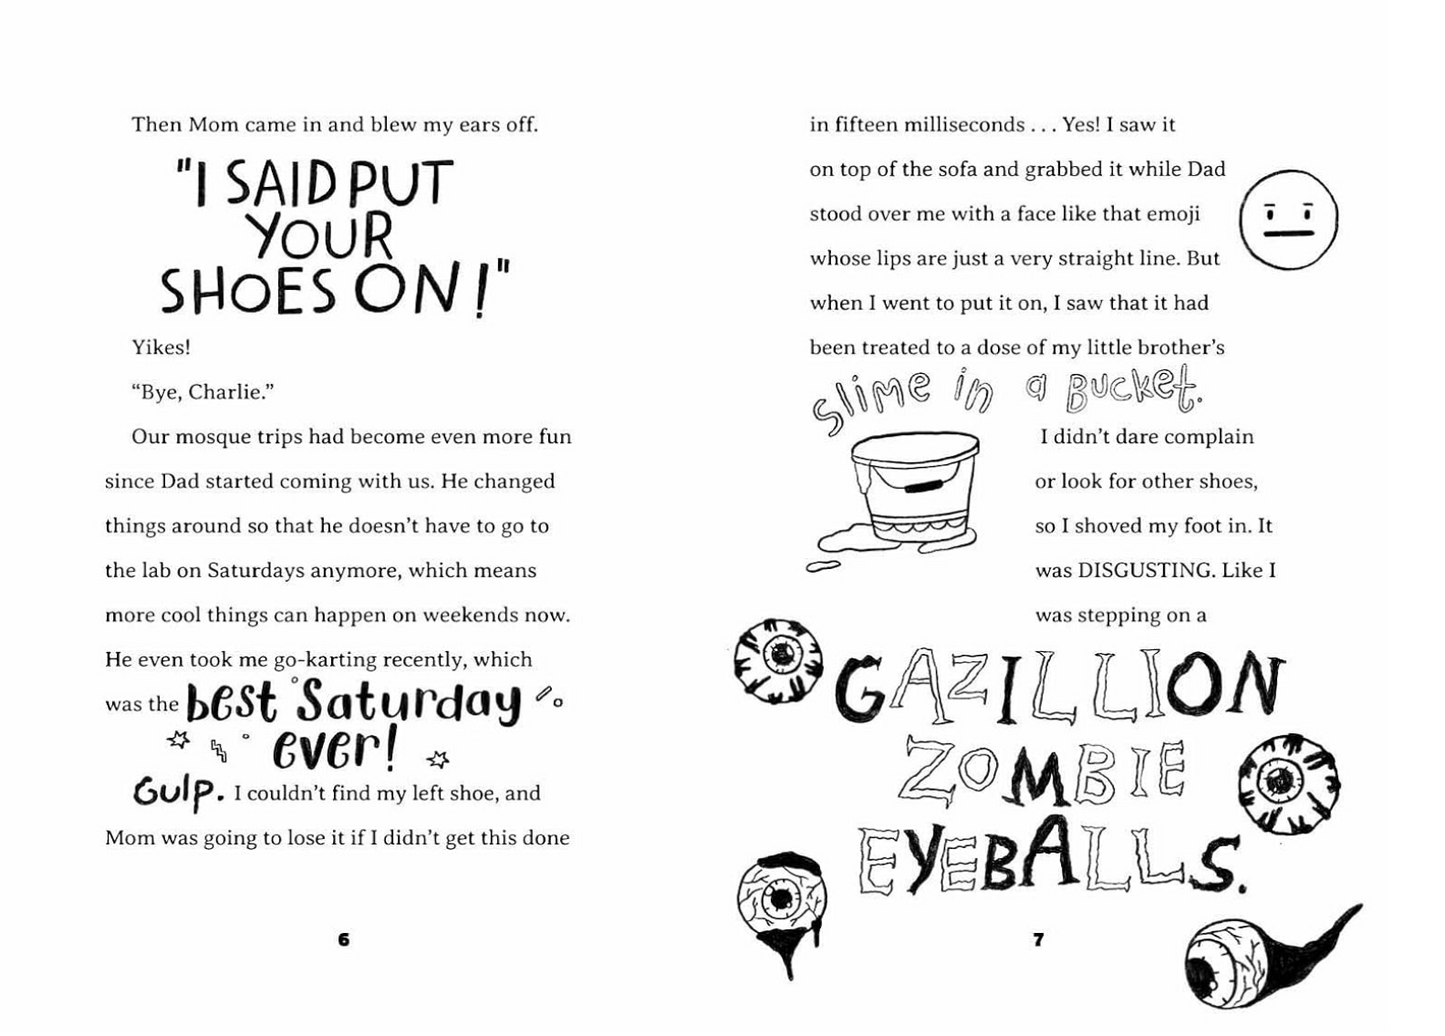 Then Mom came in and blew my ears off.
"I SAID PUT
YOUR
SHOES ON!"
Yikes!
“Bye, Charlie.”
Our mosque trips had become even more fun
since Dad started coming with us. He changed
things around so that he doesn’t have to go to
the lab on Saturdays anymore, which means
more cool things can happen on weekends now.
He even took me go-karting recently, which
was the best Saturday
ever!
Gulp. I couldn’t find my left shoe, and
Mom was going to lose it if I didn’t get this done
6
in fifteen milliseconds . . . Yes! I saw it
on top of the sofa and grabbed it while Dad
stood over me with a face like that emoji
whose lips are just a very straight line. But
when I went to put it on, I saw that it had
been treated to a dose of my little brother’s
slime in a Bucket.
I didn’t dare complain
or look for other shoes,
so I shoved my foot in. It
was DISGUSTING. Like I
was stepping on a
GAZILLION
ZOMBIE
EYEBALLS.
7